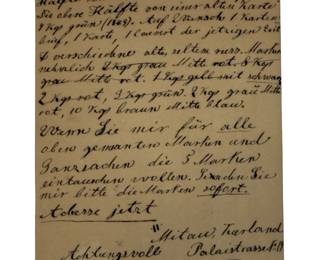 Sie obere Hälfte von einer alten Karte
1 Kop grün (1869). Auf Wunsch 1 Karten
brief, 1 Karte, 1 Couvert der jetzigen Zeit
& verschiedene alte, seltene russ. Marken
nehmlich 2 Kop grau Mitte rot. 8 Kop
grau Mitte rot. 1 Kop gelb mit schwarz
2 Kop rot, 3 Kop grün. 2 Kop grau Mitte
rot, 10 Kop braun Mitte blau.
Wenn Sie mir für alle
oben genannten Marken und
Ganzsachen die 5 Marken
eintauschen wollen. Senden Sie
mir bitte die Marken sofort.
Adresse jetzt
" Mitau, Kurland
Achtungsvoll Palaisstrasse №